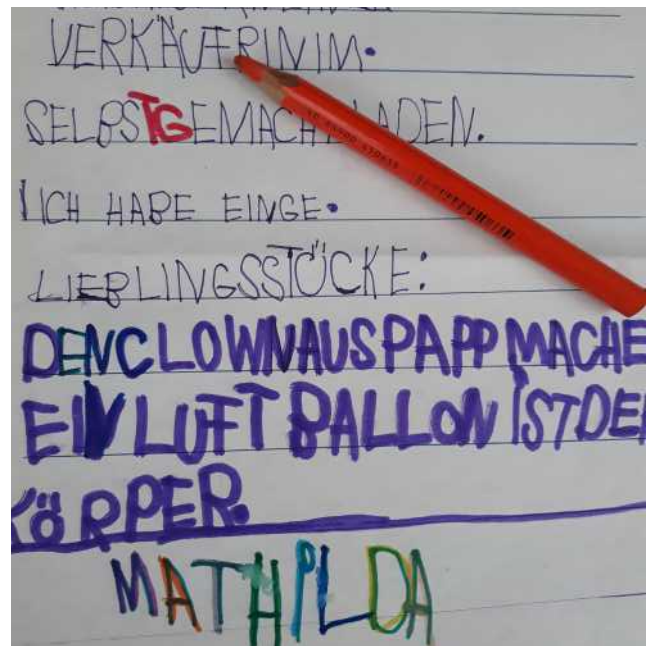 VERKÄUFRINIM.
SELBSTGEMACHT LADEN.
ICH HABE EINGE.
LIEBLINGSSTÜCKE:
DENCLOWNAUSPAPPMACHE
EIN LUFTBALLON ISTDER
KÖRPER.
MATHILDA